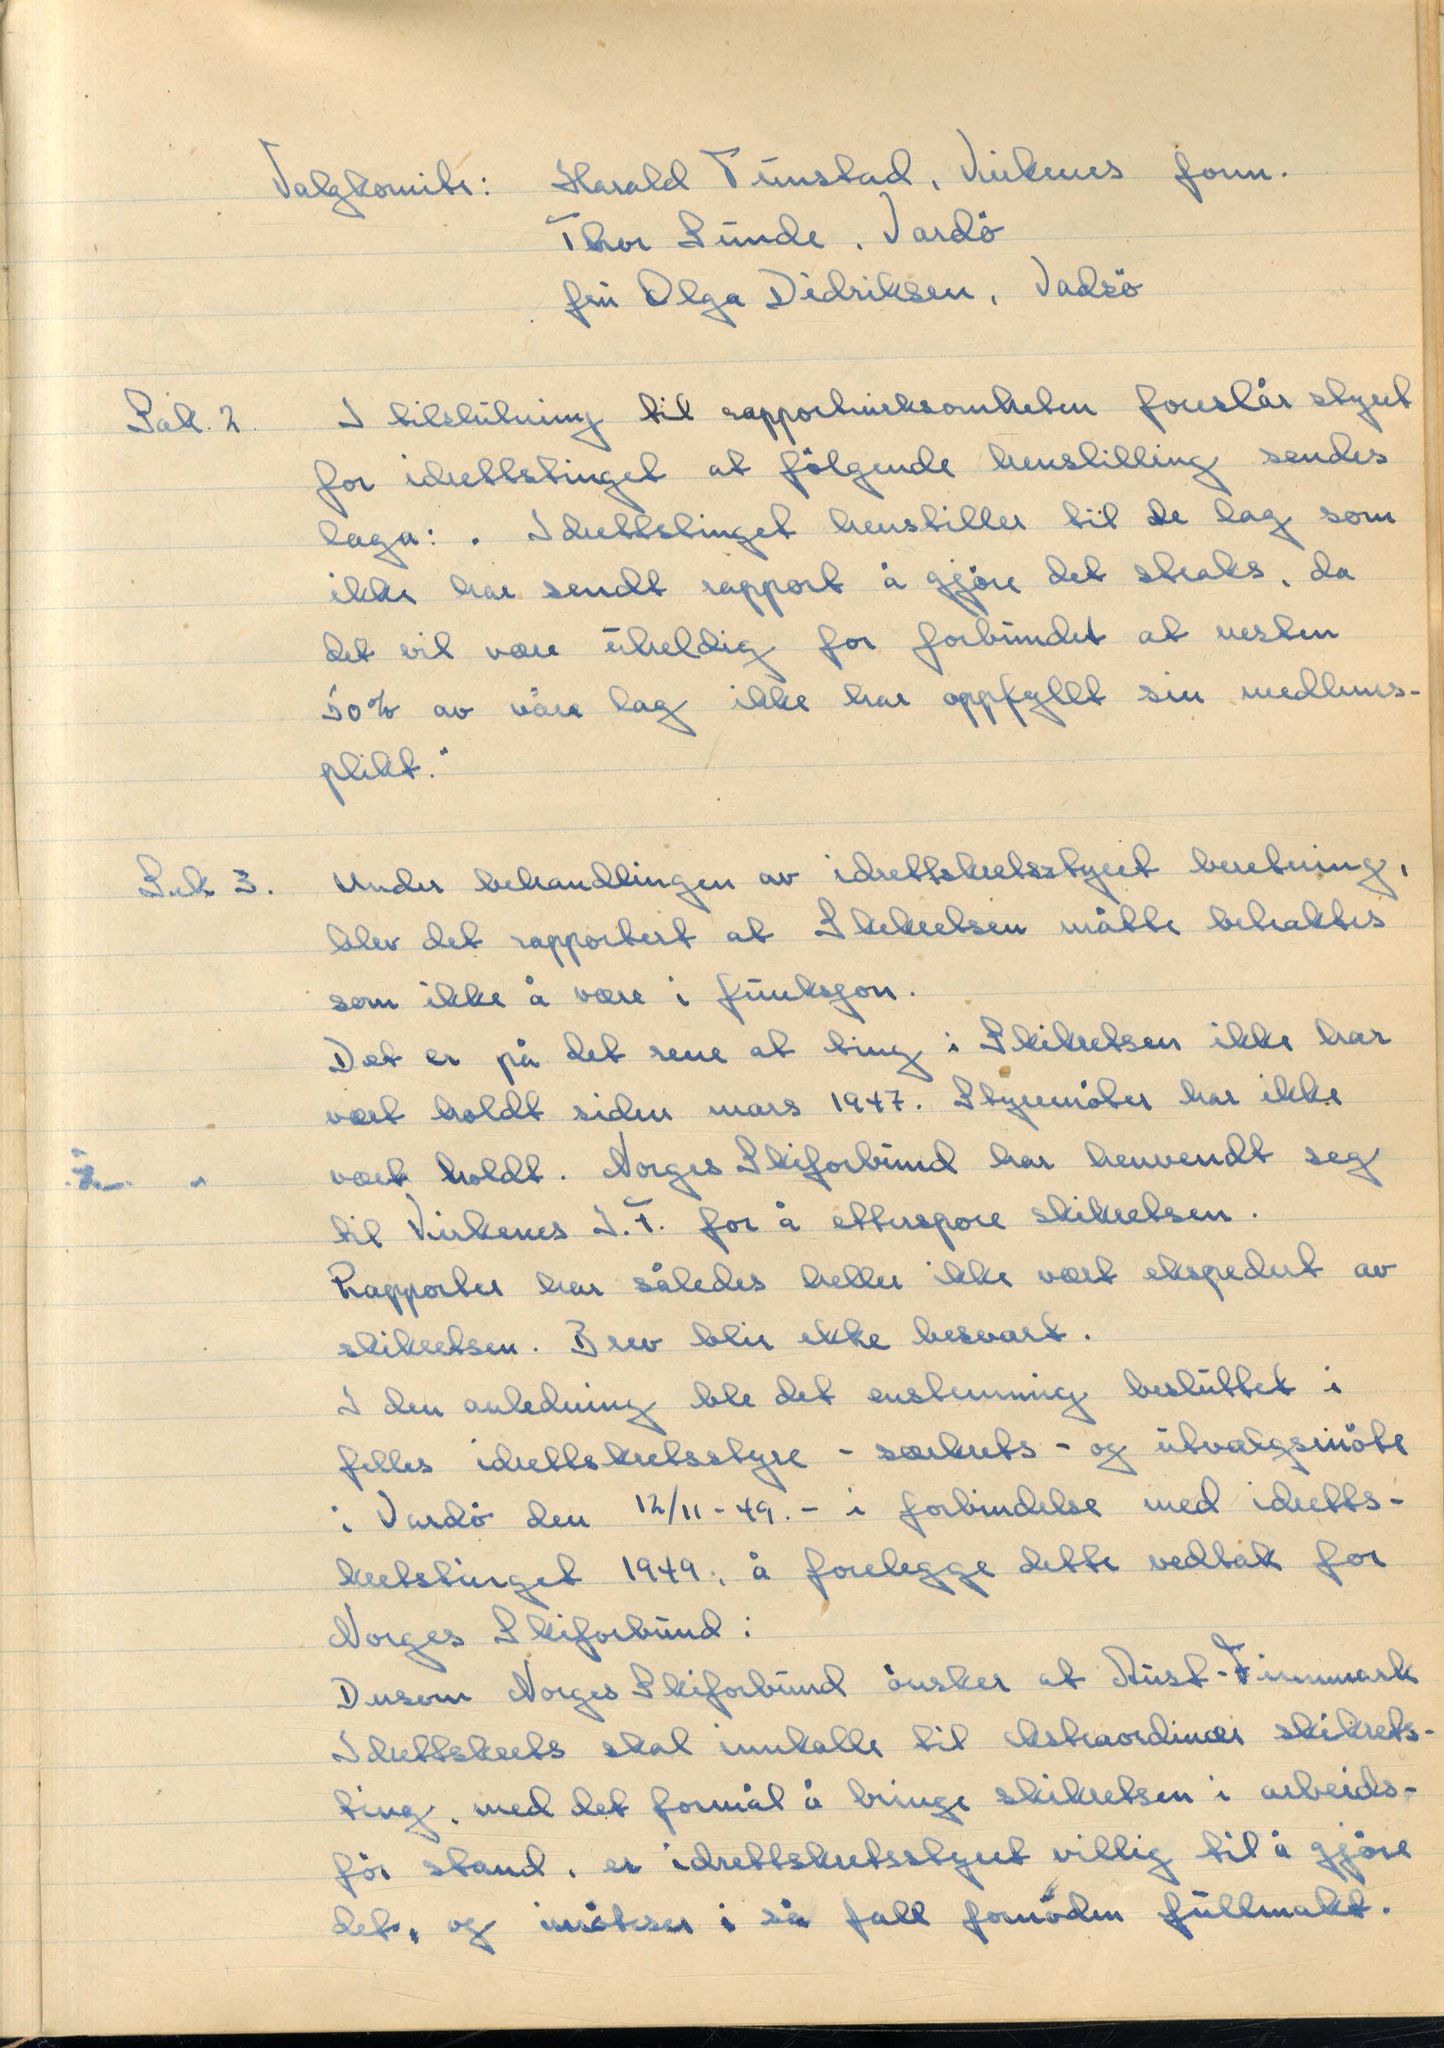 Valgkomite: Harald Tunstad, Kirkenes form.
Thor Lunde, Vardö
fru Olga Didriksen, Vadsö
Sak. 2. I tilslutning til rapportvirksomheten foreslår styret
for idrettstinget at fölgende henstilling sendes
laga: " Idrettstinget henstiller til de lag som
ikke har sendt rapport å gjöre det straks, da
det vil være uheldig for forbundet at nesten
50% av våre lag ikke har oppfyllt sin medlems-
plikt."
Sak 3. Under behandlingen av idrettskretsstyret beretning,
blev det rapportert at Skikretsen måtte betraktes
som ikke å være i funksjon.
Det er på det rene at ting i Skikretsen ikke har
vært holdt siden mars 1947. Styremöter har ikke
vært holdt. Norges Skiforbund har henvendt seg
til Kirkenes I.F. for å etterspore skikretsen.
Rapporter har således heller ikke vært ekspedert av
skikretsen. Brev blir ikke besvart.
I den anledning ble det enstemmig besluttet i
felles idrettskretsstyre - særkrets - og utvalgsmöte
i Vardö den 12/11-49. - i forbindelse med idretts-
kretstinget 1949, å forelegge dette vedtak for
Norges Skiforbund:
Dersom Norges Skiforbund önsker at Aust-Finnmark
Idrettskrets skal innkalle til ekstraordinær skikrets-
ting, med det formål å bringe skikretsen i arbeids-
för stand, er idrettskretsstyret villig til å gjöre
det, og imötser i så fall fornöden fullmakt.